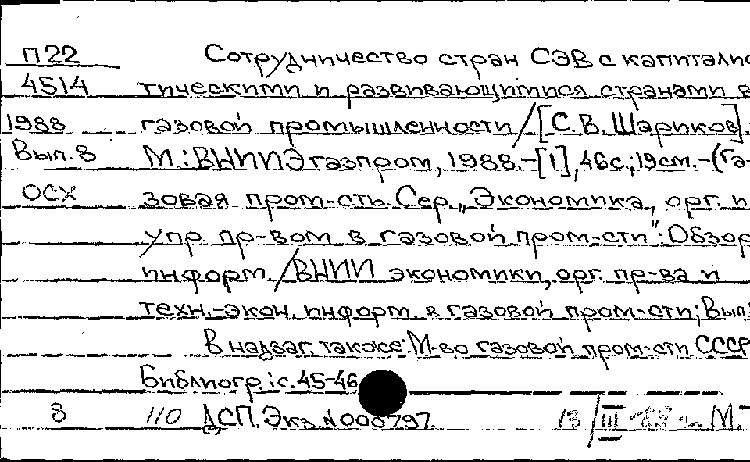 П22 Сотрудничество стран СЭВ с капитали
4514 тическими и развивающимися странами в
1988 газовой промышленности / [С.В. Шариков].
Вып. 8 М.: ВНИИЭгазпром, 1988. – [1], 46с.; 19см. – (Га-
ОСХ зовая пром-сть. Сер. „Экономика, орг. и
упр. пр-вом в газовой пром-сти": Обзор
информ. / ВНИИ экономики, орг. пр-ва и
техн.-экон. информ. в газовой пром-сти; Вып.
В надзаг. также: М-во газовой пром-сти СССР
Библиогр.: с. 45-46
8 110 ДСП. Экз. N 000797. 13/III М.